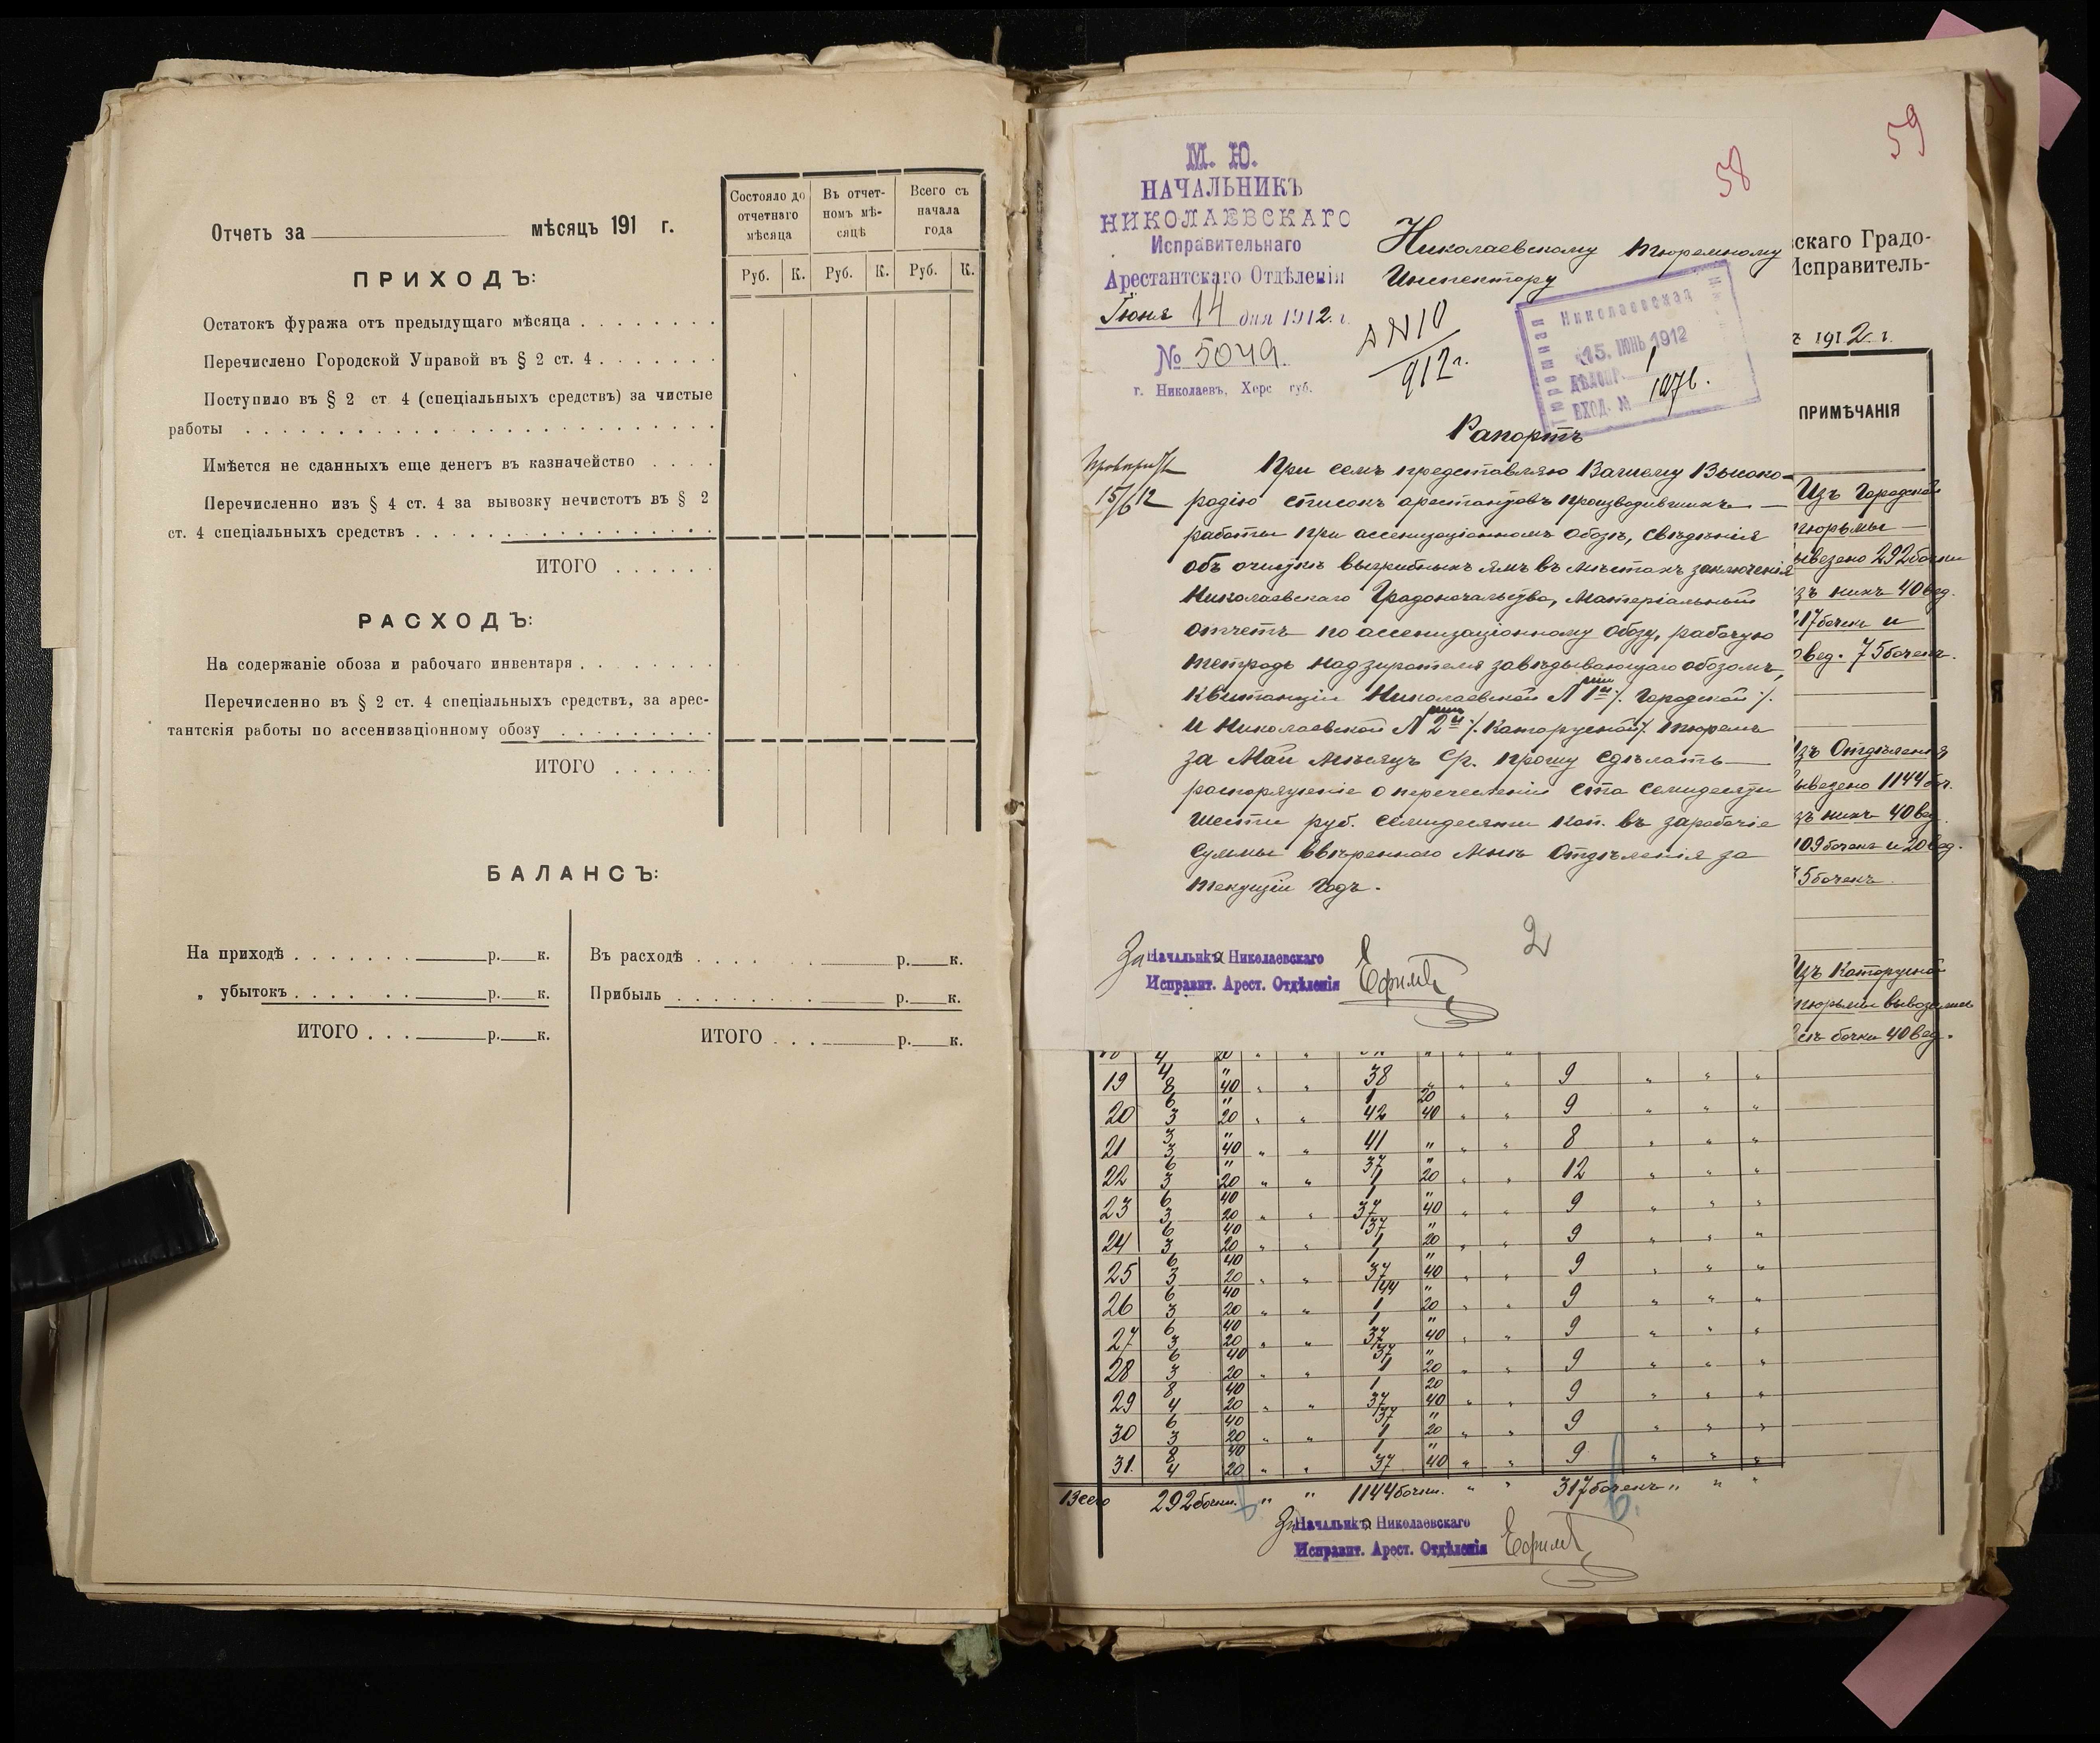 Отчетъ за мѣсяцъ 191 г.
Состояло до отчетнаго мѣсяца
Въ отчет-номъ мѣ-сяцѣ
Всего съ начала года
Руб. К. Руб. К. Руб. К.
ПРИХОДЪ:
Остатокъ фуража отъ предыдущаго мѣсяца
Перечислено Городской Управой въ § 2 ст. 4
Поступило въ § 2 ст. 4 (спеціальныхъ средствъ) за чистые
работы
Имѣется не сданныхъ еще денегъ въ казначейство
Перечисленно изъ § 4 ст. 4 за вывозку нечистотъ въ § 2
ст. 4 спеціальныхъ средствъ
ИТОГО
РАСХОДЪ:
На содержаніе обоза и рабочаго инвентаря
Перечисленно въ § 2 ст. 4 спеціальныхъ средствъ, за арес-
тантскія работы по ассенизаціонному обозу
ИТОГО
БАЛАНСЪ:
На приходѣ р. к. Въ расходѣ р. к.
„ убытокъ р. к. Прибыль р. к.
ИТОГО р. к. ИТОГО р. к.
59
58
М. Ю.
НАЧАЛЬНИКЪ
НИКОЛАЕВСКАГО
Исправительнаго
Арестантскаго Отдѣленія
Іюня 14 дня 1912. г.
№ 5049.
г. Николаевъ, Херс губ.
Николаевскому тюремному
Инспектору
Д №10
912 г.
Николаевская
15. ІЮНЬ 1912
ВХОД. № 1976.
Рапортъ
15/6 12
При семъ представляю Вашему Высоко-
родію списокъ арестантовъ производившихъ
работы при ассенизаціонномъ обозѣ, свѣдѣнія
объ очисткѣ выгребныхъ ямъ въ мѣстахъ заключенія
Николаевскаго Градоначальства, матеріальный
отчетъ по ассенизаціонному обозу, рабочую
тетрадь надзирателя завѣдывающаго обозомъ,
квитанціи Николаевской № 1й ./. Городской ./.
и Николаевской № 2й ./. Каторжной ./. тюремъ
за Май мѣсяцъ с/г. прошу сдѣлать
распоряженіе о перечисленіи ста семидесяти
шести руб. семидесяти коп. въ заработчіе
суммы ввѣреннаго мнѣ Отдѣленія за
текущій годъ.
2
За Начальника Николаевскаго
Исправит. Арест. Отдѣленія
скаго Градо-
Исправитель-
1912 г.
ПРИМѢЧАНІЯ
Изъ Городской
тюрьмы
вывезено 292 бочки
изъ нихъ 40 вед.
217 бочекъ и
20 вед. 75 бочекъ.
Изъ Отдѣленія
вывезено 1144 боч.
изъ нихъ 40 вед.
109 бочекъ и 20 вед.
35 бочекъ
Изъ Каторжной
тюрьмы вывозились
бочки 40 вед.
19 4 8 " 40 38 " 9
20 6 3 " 20 1 42 20 40 9
21 3 3 " 40 41 " 8
22 6 3 " 20 37 1 " 20 12
23 6 3 40 20 1 37 " 40 9
24 6 3 40 20 37 1 " 20 9
25 6 3 40 20 1 37 " 40 9
26 6 3 40 20 44 1 " 20 9
27 6 3 40 20 1 37 " 40 9
28 6 3 40 20 37 1 " 20 9
29 8 4 40 20 1 37 20 40 9
30 6 3 40 20 37 1 " 20 9
31. 8 4 40 20 1 37 " 40 9
Всего 292 бочки. " " 1144 бочки. " " 317 бочекъ " " "
За Начальника Николаевскаго
Исправит. Арест. Отдѣленія